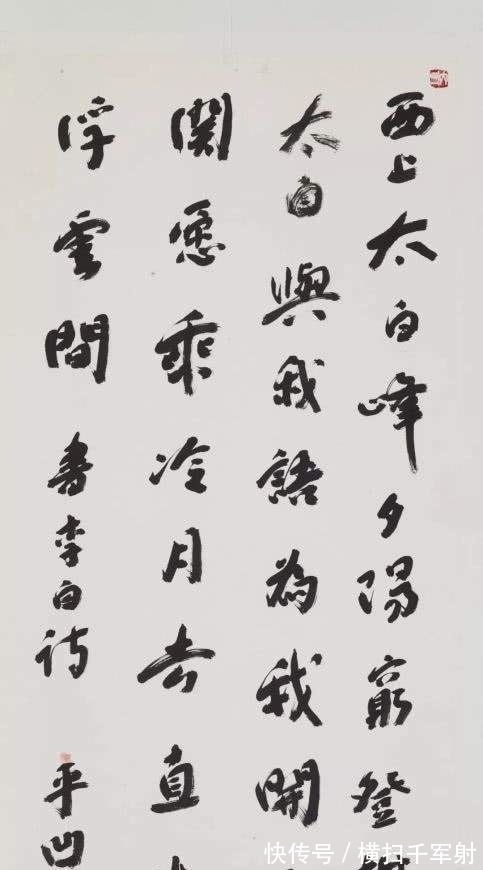 西上太白峰夕陽窮登
太白與我語為我開
関愿乘冷月去直
浮雲間 書李白詩 平凹
快传号 / 横扫千军射